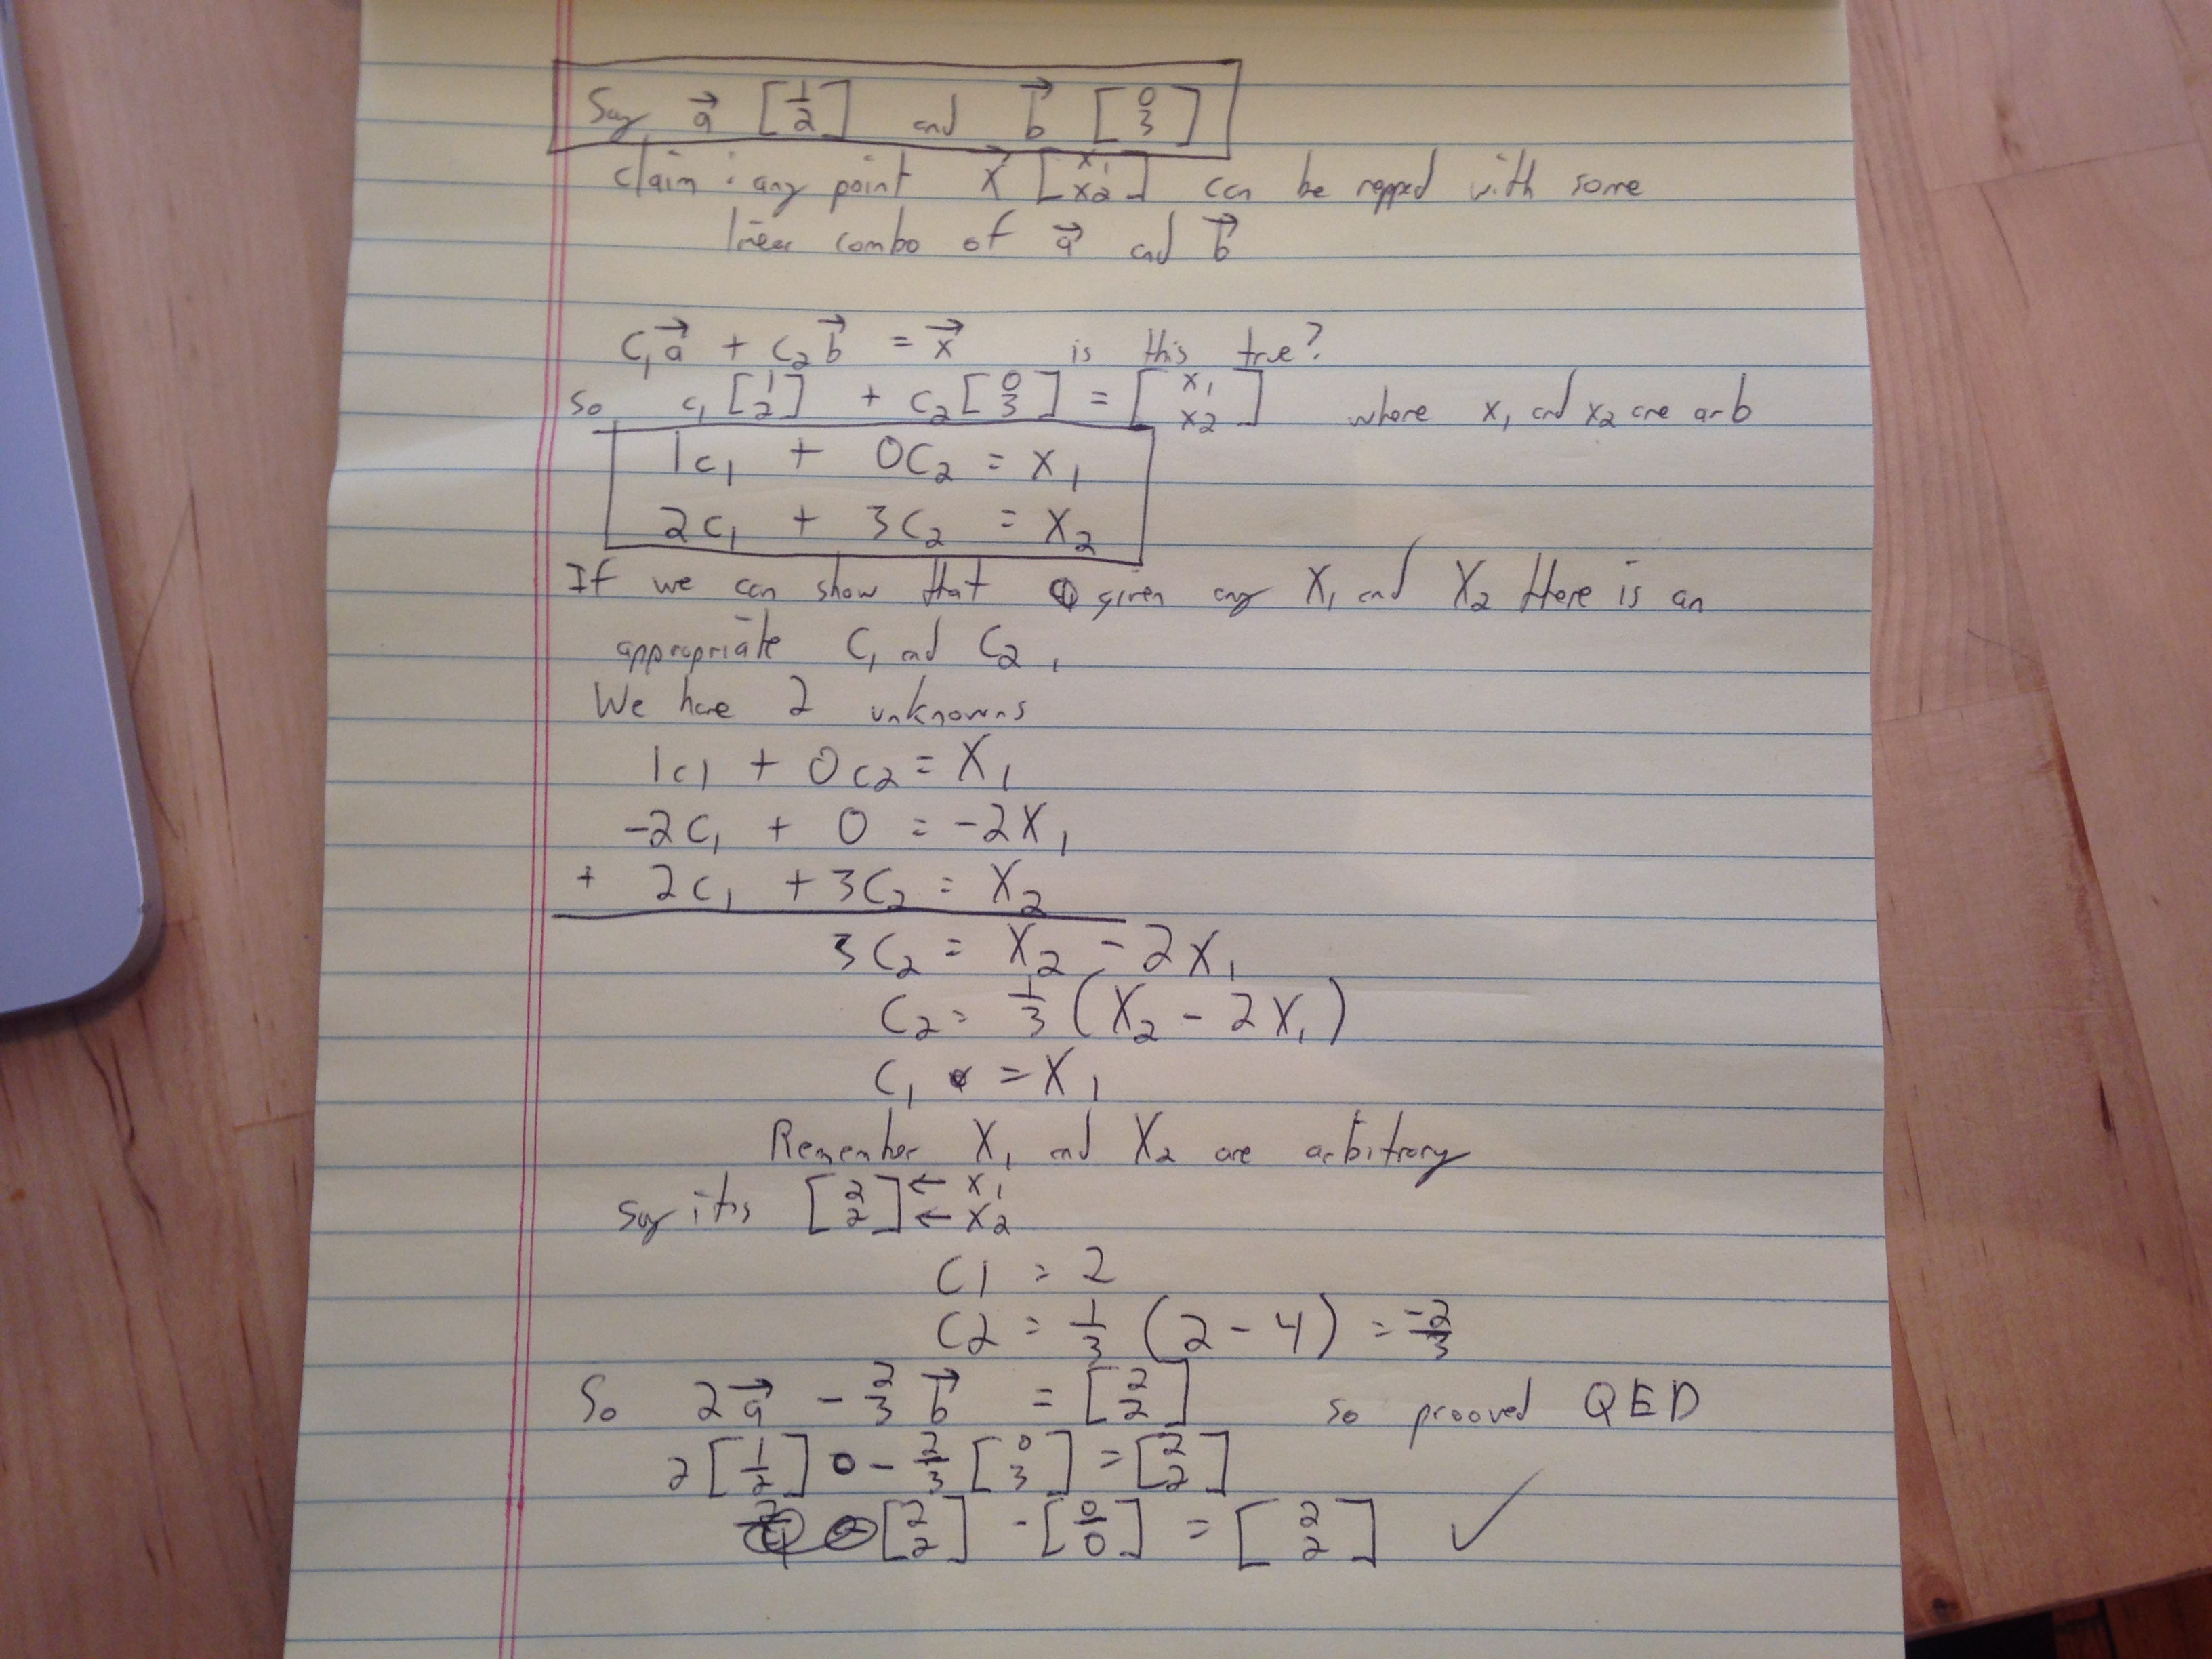 Say a⃗ [1 2] and b⃗ [0 3]
claim: any point x⃗ [x1 x2] can be repped with some
linear combo of a⃗ and b⃗
C1a⃗ + C2b⃗ = x⃗ is this true?
so c1[1 2] + c2[0 3] = [x1 x2] where x1 and x2 are arb
1c1 + 0C2 = X1
2c1 + 3C2 = X2
If we can show that given any X1 and X2 there is an
appropriate C1 and C2,
We have 2 unknowns
1c1 + 0c2 = X1
-2c1 + 0 = -2X1
+ 2c1 + 3C2 = X2
3C2 = X2 - 2X1
C2 = 1/3 (X2 - 2X1)
C1 = X1
Remember X1 and X2 are arbitrary
Say its [2 2] ← X1 ← X2
C1 = 2
C2 = 1/3 (2 - 4) = -2/3
So 2a⃗ - 2/3 b⃗ = [2 2] so prooved QED
2[1 2] - 2/3 [0 3] = [2 2]
[2 2] - [0 0] = [2 2] ✓